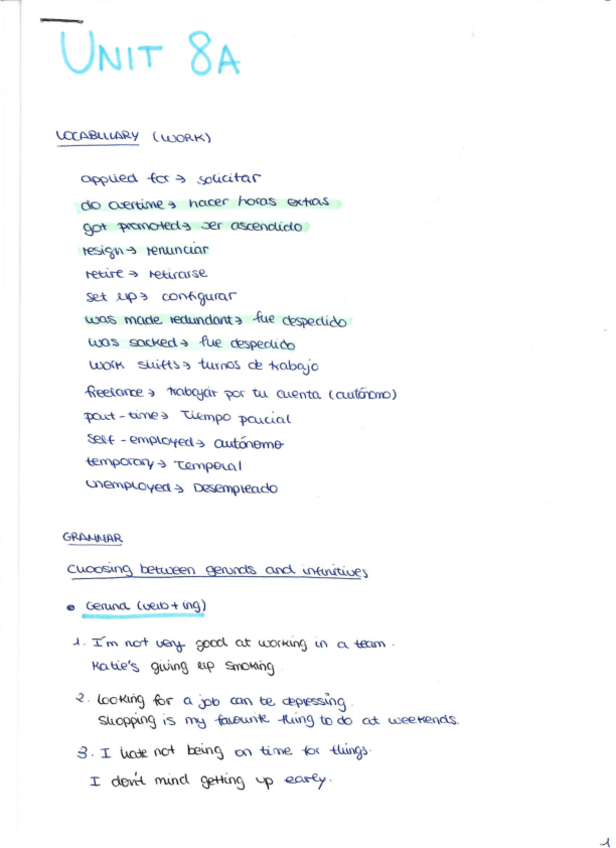 UNIT 8A
VOCABULARY (WORK)
applied for → solicitar
do overtime → hacer horas extras
got promoted → ser ascendido
resign → renunciar
retire → retirarse
set up → configurar
was made redundant → fue despedido
was sacked → fue despedido
work shifts → turnos de trabajo
freelance → trabajar por tu cuenta (autónomo)
part-time → Tiempo parcial
self-employed → autónomo
temporary → Temporal
unemployed → Desempleado
GRAMMAR
Choosing between gerunds and infinitives
• Gerund (verb + ing)
1. I'm not very good at working in a team.
Katie's giving up smoking
2. Looking for a job can be depressing.
Shopping is my favourite thing to do at weekends.
3. I hate not being on time for things.
I don't mind getting up early.
1